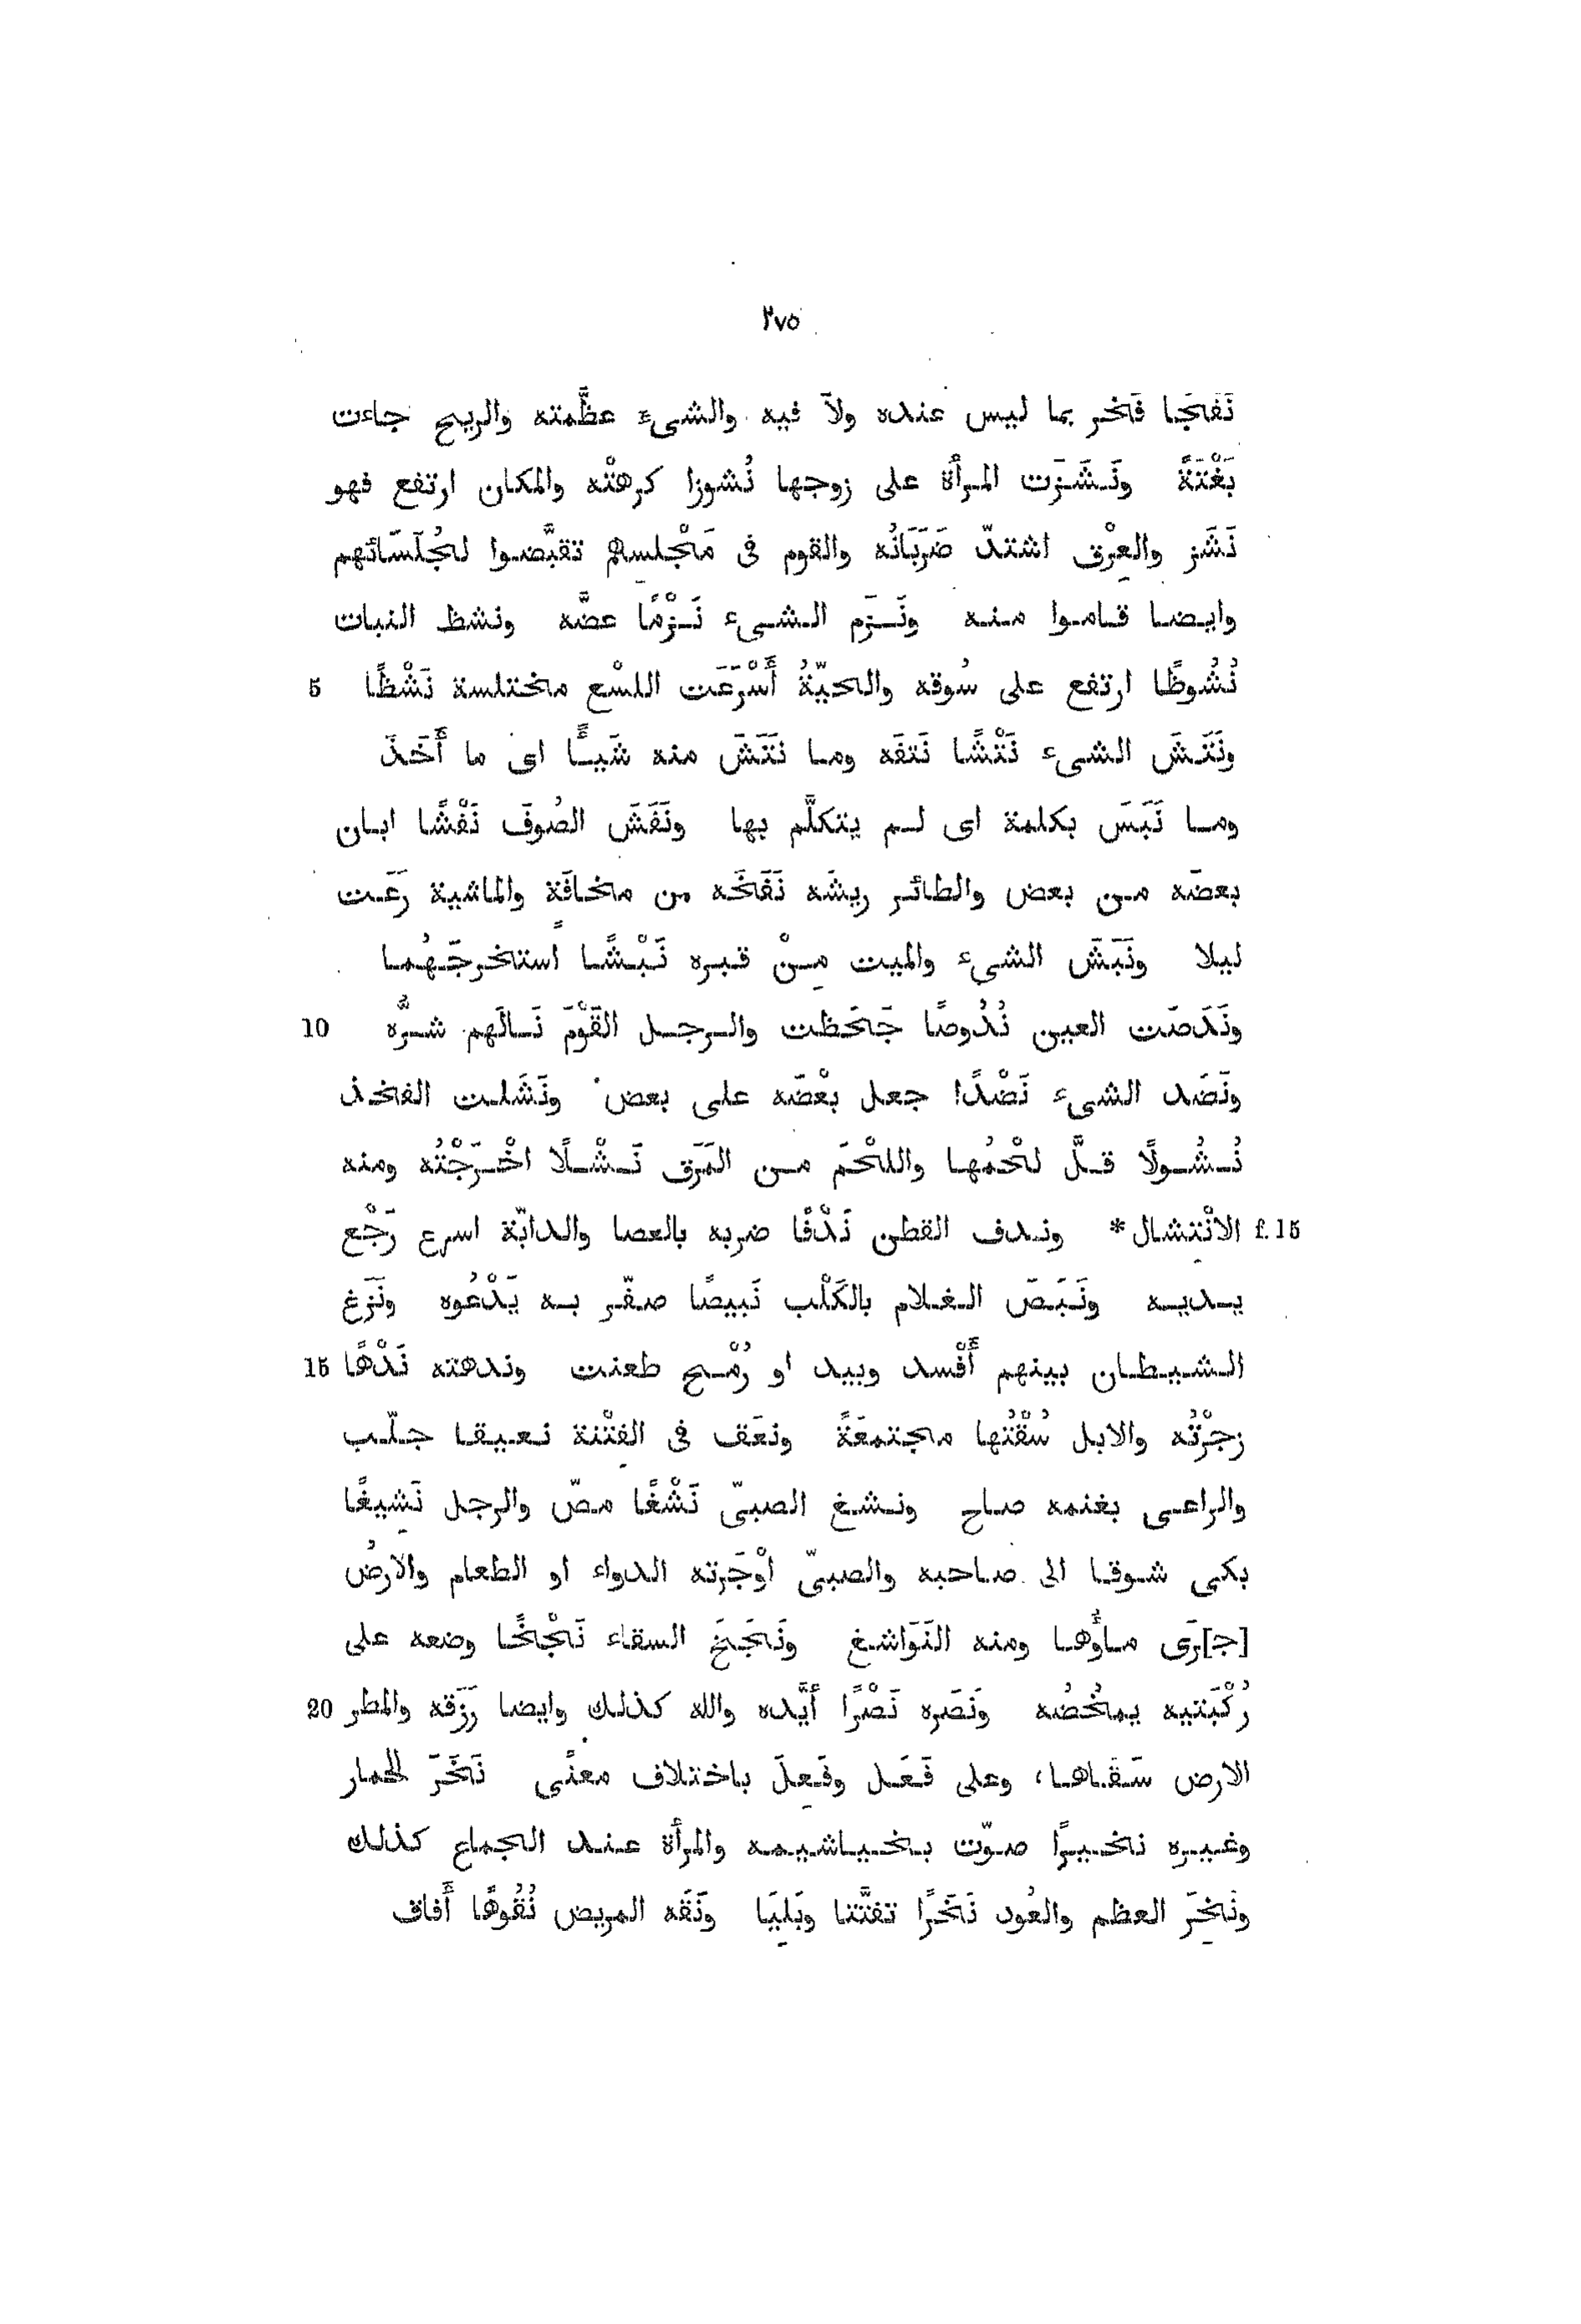 ٢٧٥
نَفَجًا فَخر بما ليس عنده ولَا فيه والشىءَ عظّمته والريح جاءت
بَغْتَةً ونَشَزَت المرأة على زوجها نُشوزا كرهتْه والمكان ارتفع فهو
نَشَز والعِرْق اشتدّ ضَرَبَانُه والقوم فى مَجْلسهم تقبَّضوا لجُلَسَائهم
وايضا قاموا منه ونَزَم الشىء نَزْمًا عضَّه ونشظ النبات
5 نُشُوظًا ارتفع على سُوقه والحيّةُ أَسْرَعَت اللسْع مختلسة نَشْظًا
ونَتَشَ الشىء نَتْشًا نَتفَه وما نَتَشَ منه شَيـًٔا اى ما أَخَذَ
وما نَبَسَ بكلمة اى لم يتكلَّم بها ونَفَشَ الصُوفَ نَفْشًا ابان
بعضَه من بعض والطائر ريشَه نَفَخَه من مخافَةٍ والماشية رَعَت
ليلا ونَبَشَ الشىء والميت مِنْ قبره نَبْشًا اُستخرجَهُما
10 ونَدَصَت العين نُدُوصًا جَحَظت والرجل القَوْمَ نَالَهم شرُّه
ونَضَد الشىء نَضْدًا جعل بعْضَه على بعض ونَشَلت الفخذ
نُشُولًا قلَّ لحْمُها واللحْمَ من المَرَق نَشْلًا اخْرَجْتُه ومنه
f. 15 الانْتِشال* وندف القطن نَدْفًا ضربه بالعصا والدابّة اسرع رَجْع
يديه ونَبَصَ الغلام بالكَلْب نَبيصًا صفّر به يَدْعُوه ونَزغ
15 الشيطان بينهم أَفْسد وبيد او رُمْح طعنت وندهته نَدْهًا
زجرْتُه والابل سُقْتُها مجتمعَةً ونعَق فى الفِتْنة نعيقا جلّب
والراعى بغنمه صاح ونشغ الصبىّ نَشْغًا مصّ والرجل نَشِيغًا
بكى شوقا الى صاحبه والصبىّ اوْجَرته الدواء او الطعام والارضُ
[ج]رَى ماؤُها ومنه النَوَاشغ ونَجَخَ السقاء نَجْخًا وضعه على
20 رُكْبَتيه يمخُضُه ونَصَره نَصْرًا أيَّده والله كذلك وايضا رَزَقه والمطر
الارض سَقَاها، وعلى فَعَل وفَعِلَ باختلاف معنًى نَخَرَ الحمار
وغيره نخيرًا صوّت بخياشيمه والمرأة عند الجماع كذلك
ونَخِرَ العظم والعُود نَخَرًا تفتَّتا وبَلِيَا ونَقَه المريض نُقُوهًا أَفاق